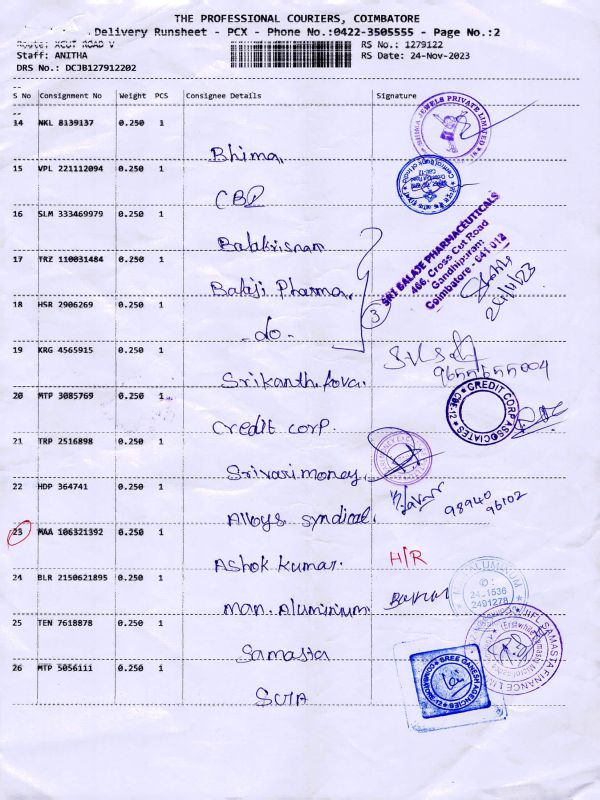 THE PROFESSIONAL COURIERS, COIMBATORE
Delivery Runsheet - PCX - Phone No.:0422-3505555 - Page No.:2
Route: XCUT ROAD V
RS No.: 1279122
Staff: ANITHA
RS Date: 24-Nov-2023
DRS No.: DCJB127912202
S No Consignment No Weight PCS Consignee Details Signature
14 NKL 8139137 0.250 1
Bhima
BHIMA JEWELS PRIVATE LIMITED
15 VPL 221112094 0.250 1
CBI
Central Bank of India
16 SLM 333469979 0.250 1
Balakrisnam
17 TRZ 110031484 0.250 1
Balaji Pharma
SRI BALAJE PHARMACEUTICALS
466, Cross Cut Road
Gandhipuram
Coimbatore - 641 012
24/11/23
18 HSR 2906269 0.250 1
- do -
3
19 KRG 4565915 0.250 1
Srikanth
20 MTP 3085769 0.250 1
Credit corp.
CREDIT CORP ASSOCIATES
CBE-12
21 TRP 2516898 0.250 1
Srivari money
22 HDP 364741 0.250 1
Alloys syndicat
98940 96102
23 MAA 106321392 0.250 1
Ashok kumar.
H/R
24 BLR 2150621895 0.250 1
man. Aluminium
ALUMINIUM
2491278
25 TEN 7618878 0.250 1
Samasta
SAMASTA FINANCE LIMITED
26 MTP 5056111 0.250 1
SREE GANESH AGENCIES